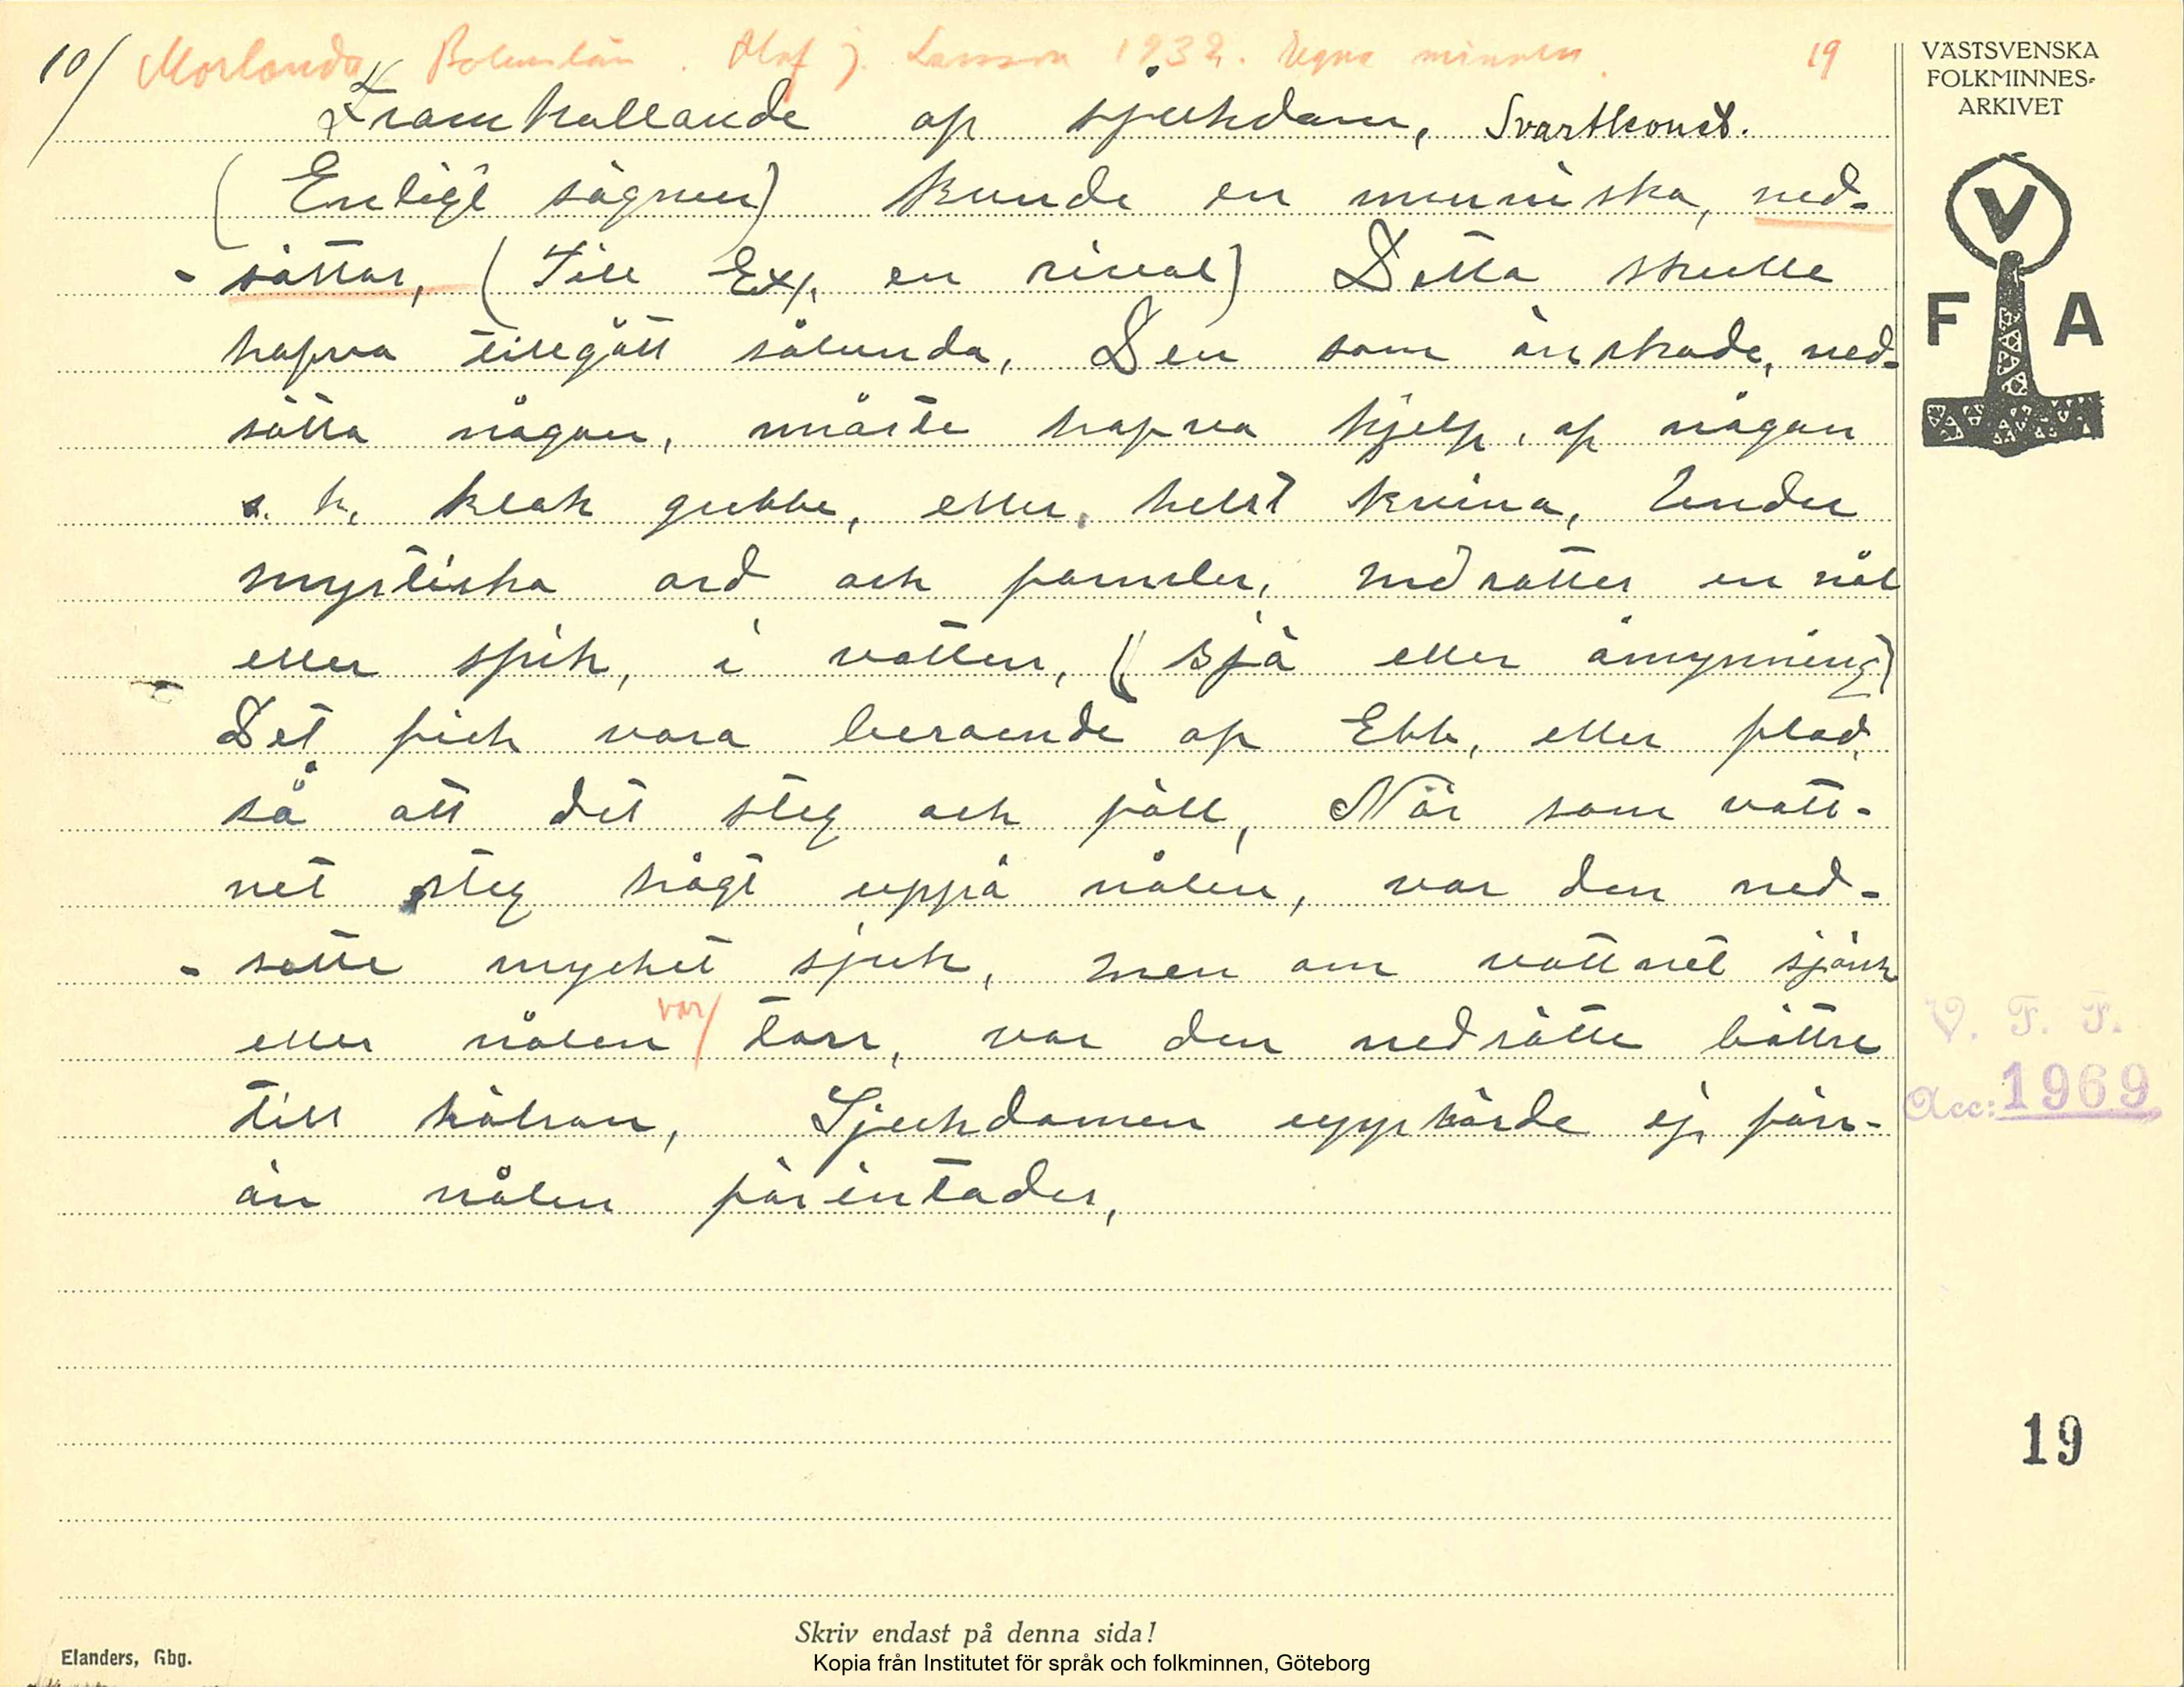 10/ Morlanda, Bohuslän. Olof J. Larsson 1932. Egna minnen. 19
Framkallande af sjukdom, Svartkonst.
(Enligt sägnen) kunde en menniska, ned-
-sättas, (Till Ex, en rival) Detta skulle
hafva tillgått sålunda, Den som önskade, ned-
sätta någon, måste hafva hjelp, af någon
s. k, klok gubbe, eller, helst kvina, Under
mystiska ord och formler, nedsattes en nål
eller spik, i vatten, (sjö eller åmynning)
Det fick vara beroende af Ebb, eller flod,
så att det steg och föll, När som vatt-
net steg högt uppå nålen, var den ned-
-satte mycket sjuk, men om vattnet sjönk
eller nålen var/ torr, var den nedsatte bättre
till hälsan, Sjukdomen upphörde ej, förr-
än nålen förintades,
VÄSTSVENSKA
FOLKMINNES-
ARKIVET
V
F A
V. F. F.
Acc: 1969
19
Skriv endast på denna sida!
Elanders, Gbg.
Kopia från Institutet för språk och folkminnen, Göteborg